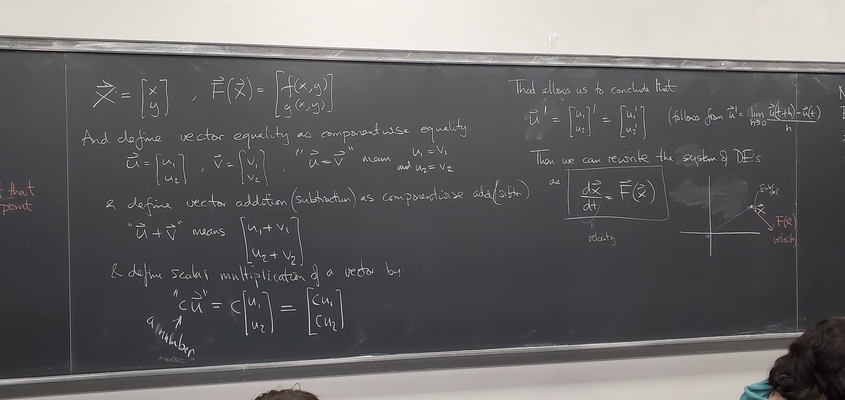 t that
point
X⃗ = [x y] , F⃗(X⃗) = [f(x,y) g(x,y)]
And define vector equality as componentwise equality
u⃗ = [u₁ u₂] , v⃗ = [v₁ v₂] , "u⃗ = v⃗" mean u₁ = v₁ and u₂ = v₂
& define vector addition (subtraction) as componentwise add (subtr)
"u⃗ + v⃗" means [u₁ + v₁ u₂ + v₂]
& define scalar multiplication of a vector by
"c u⃗" = c [u₁ u₂] = [cu₁ cu₂]
a number
That allows us to conclude that
u⃗' = [u₁ u₂]' = [u₁' u₂'] (follows from u⃗' = lim h→0 u⃗(t+h) - u⃗(t) / h
Then we can rewrite the system of DEs
as dx⃗/dt = F⃗(x⃗)
"
velocity
x⃗
F⃗(x⃗)
velocity